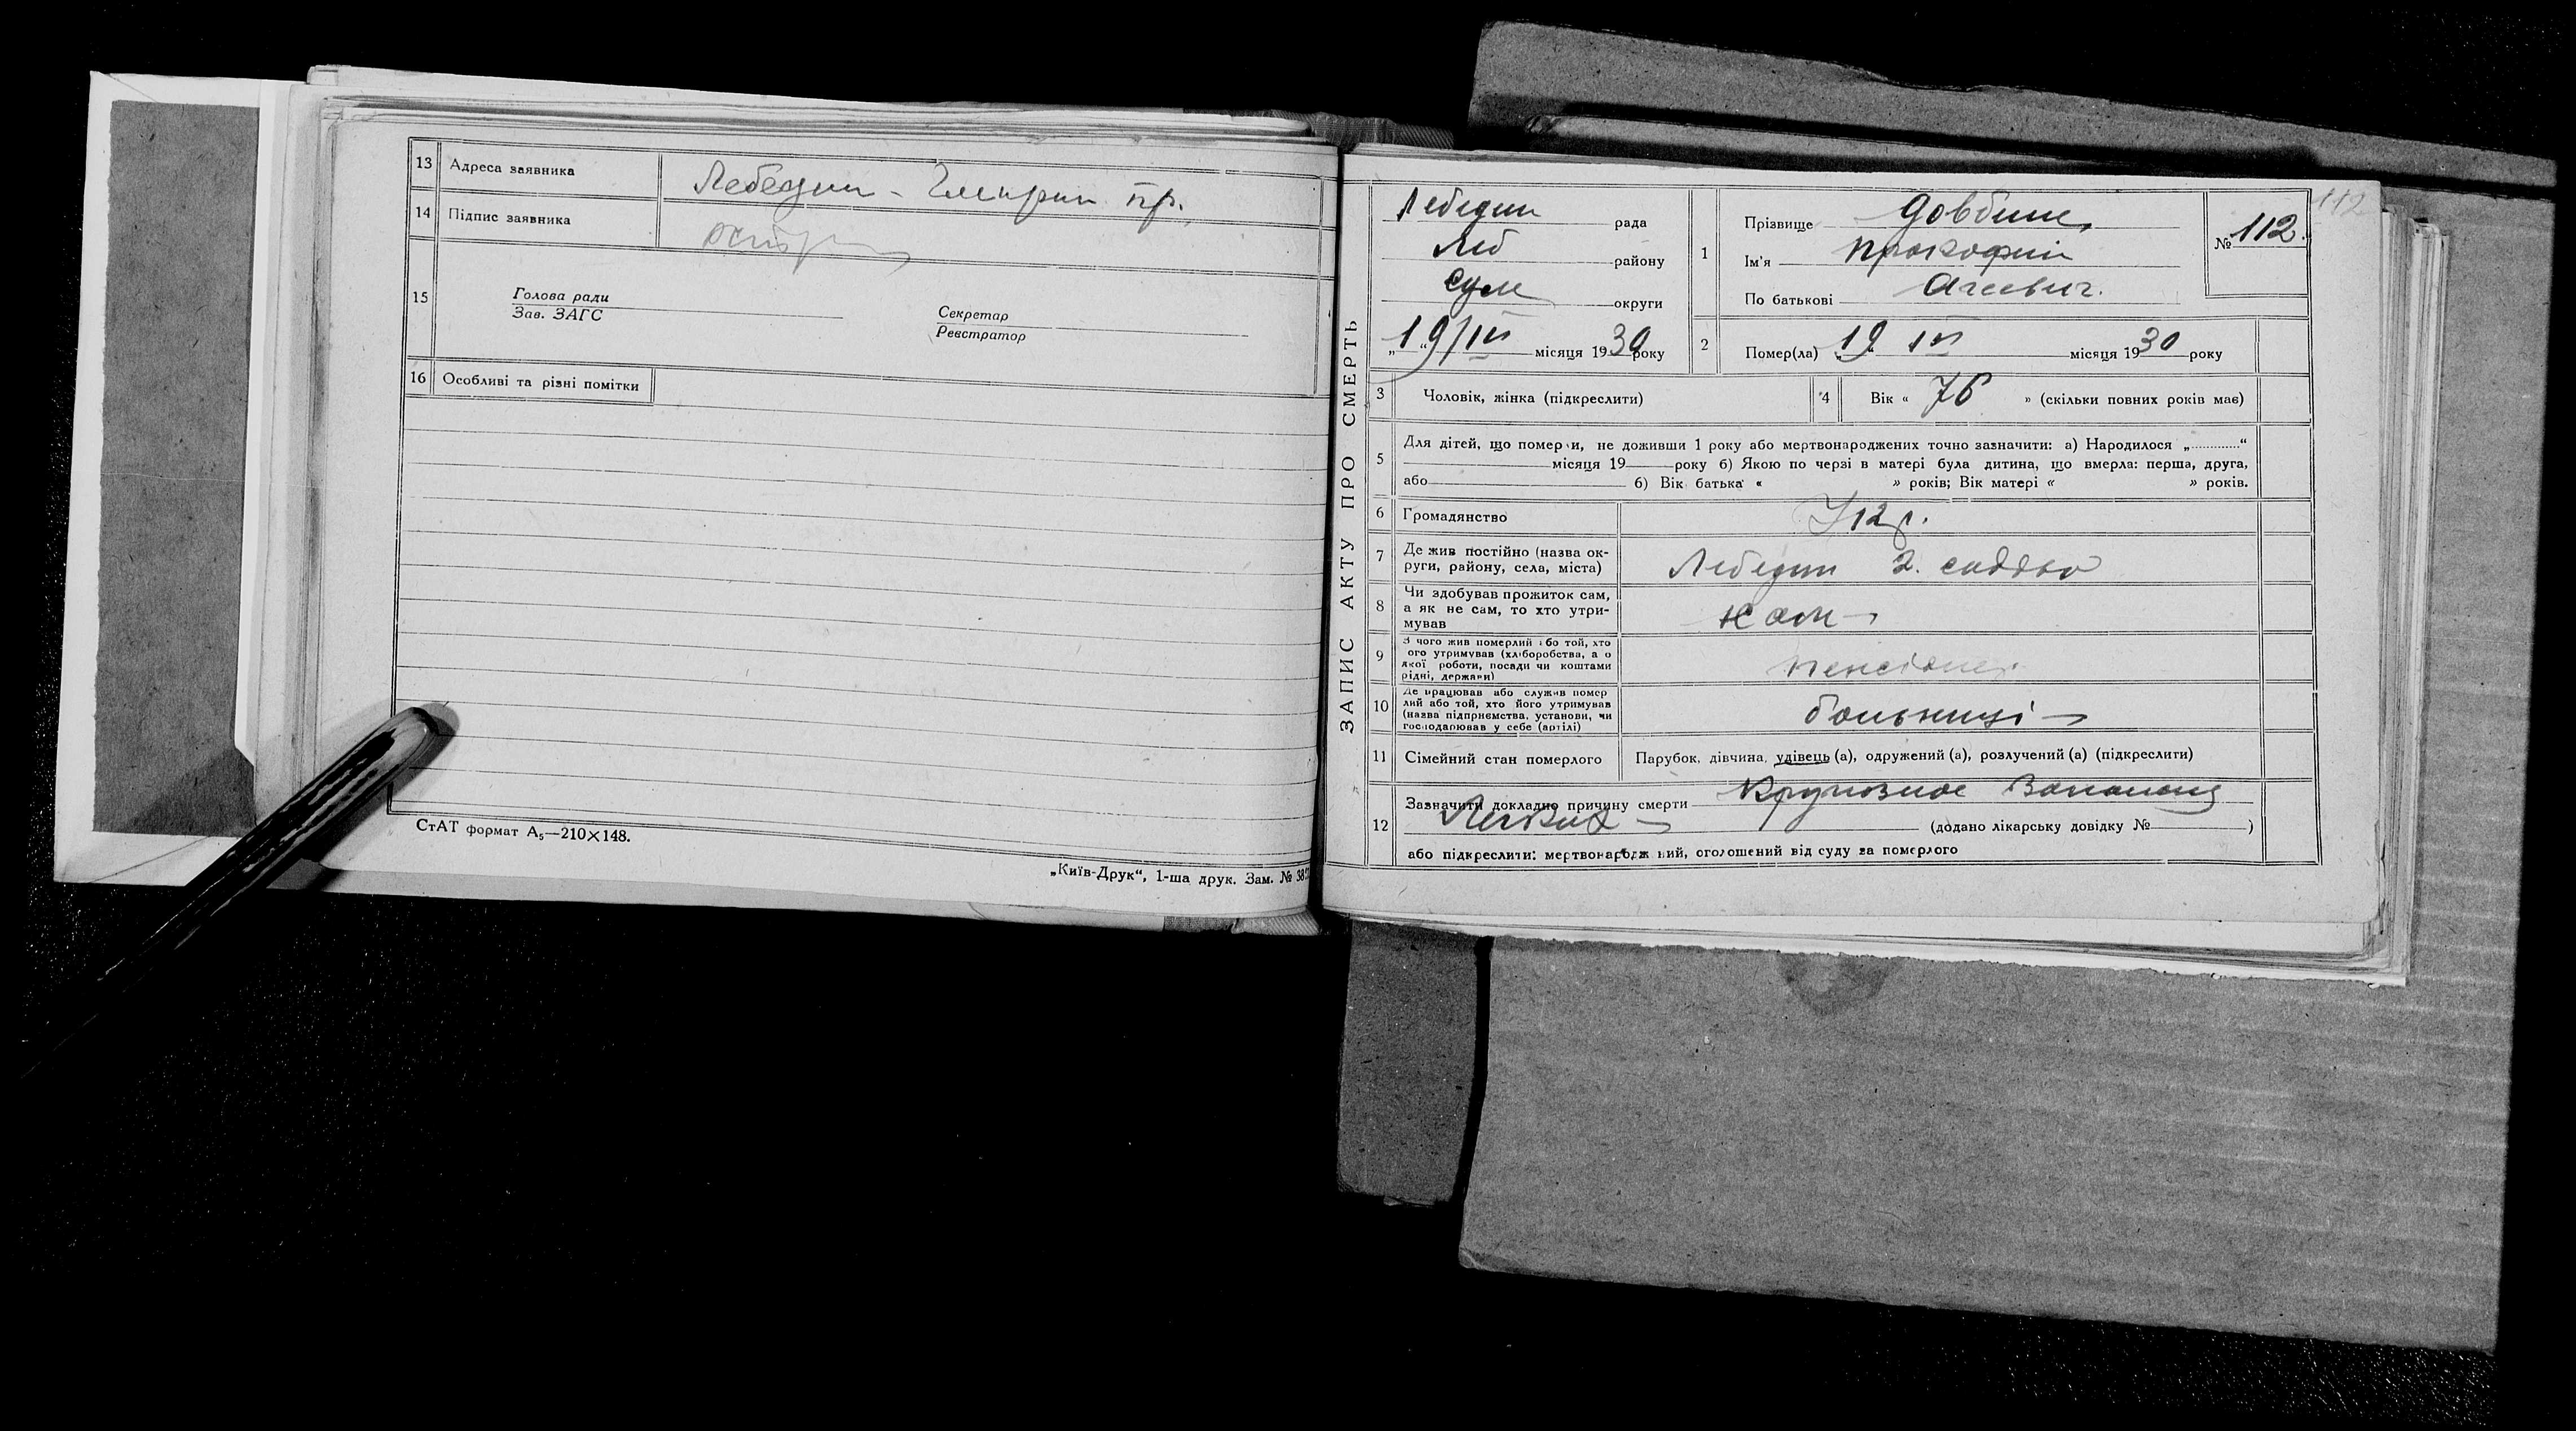 13 Адреса заявника Лебедин - пр.
14 Підпис заявника
15 Голова ради
Зав. ЗАГС
Секретар
Реєстратор
16 Особливі та різні помітки
СтАТ формат А₅—210×148.
„Київ-Друк“, 1-ша друк. Зам. № 38
ЗАПИС АКТУ ПРО СМЕРТЬ
Лебедин рада
Леб району
Сум округи
„19/III місяця 1930 року
1 Прізвище Довбиш
Ім'я Прокофій
По батькові Агеевич.
№ 112.
112
2 Помер(ла) „19“ III місяця 1930 року
3 Чоловік, жінка (підкреслити)
4 Вік « 76 » (скільки повних років має)
5 Для дітей, що померли, не доживши 1 року або мертвонароджених точно зазначити: а) Народилося „............“
місяця 19 року б) Якою по черзі в матері була дитина, що вмерла: перша, друга,
або б) Вік батька « » років; Вік матері « » років.
6 Громадянство Укр.
7 Де жив постійно (назва округи, району, села, міста) Лебедин 2.
8 Чи здобував прожиток сам,
а як не сам, то хто утримував
сам
9 З чого жив померлий або той, хто
його утримував (хліборобства, а о
якої роботи, посади чи коштами
рідні, держави)
пенсіонер.
10 Де працював або служив помер
лий або той, хто його утримував
(назва підприємства, установи, чи
господарював у себе (артілі)
больниці
11 Сімейний стан померлого Парубок, дівчина, удівець (а), одружений (а), розлучений (а) (підкреслити)
12 Зазначити докладно причину смерти Крупозное
Легких (додано лікарську довідку № )
або підкреслити: мертвонароджений, оголошений від суду за померлого